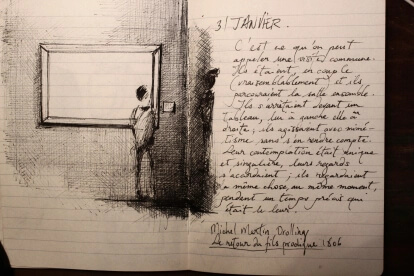 31 JANVIER.
C'est ce qu'on peut
appeler une commune.
Ils étaient, en couple
(vraisemblablement) et ils
parcouraient la salle ensemble.
Ils s'arrêtaient devant un
tableau, lui à gauche elle à
droite ; ils agissaient avec mimé-
tisme sans s'en rendre compte.
Leur contemplation était unique
et singulière, leurs regards
s'accordaient ; ils regardaient
la même chose, au même moment,
pendant un temps précis qui
était le leur.
Michel Martin Drolling
Le retour du fils prodigue 1806